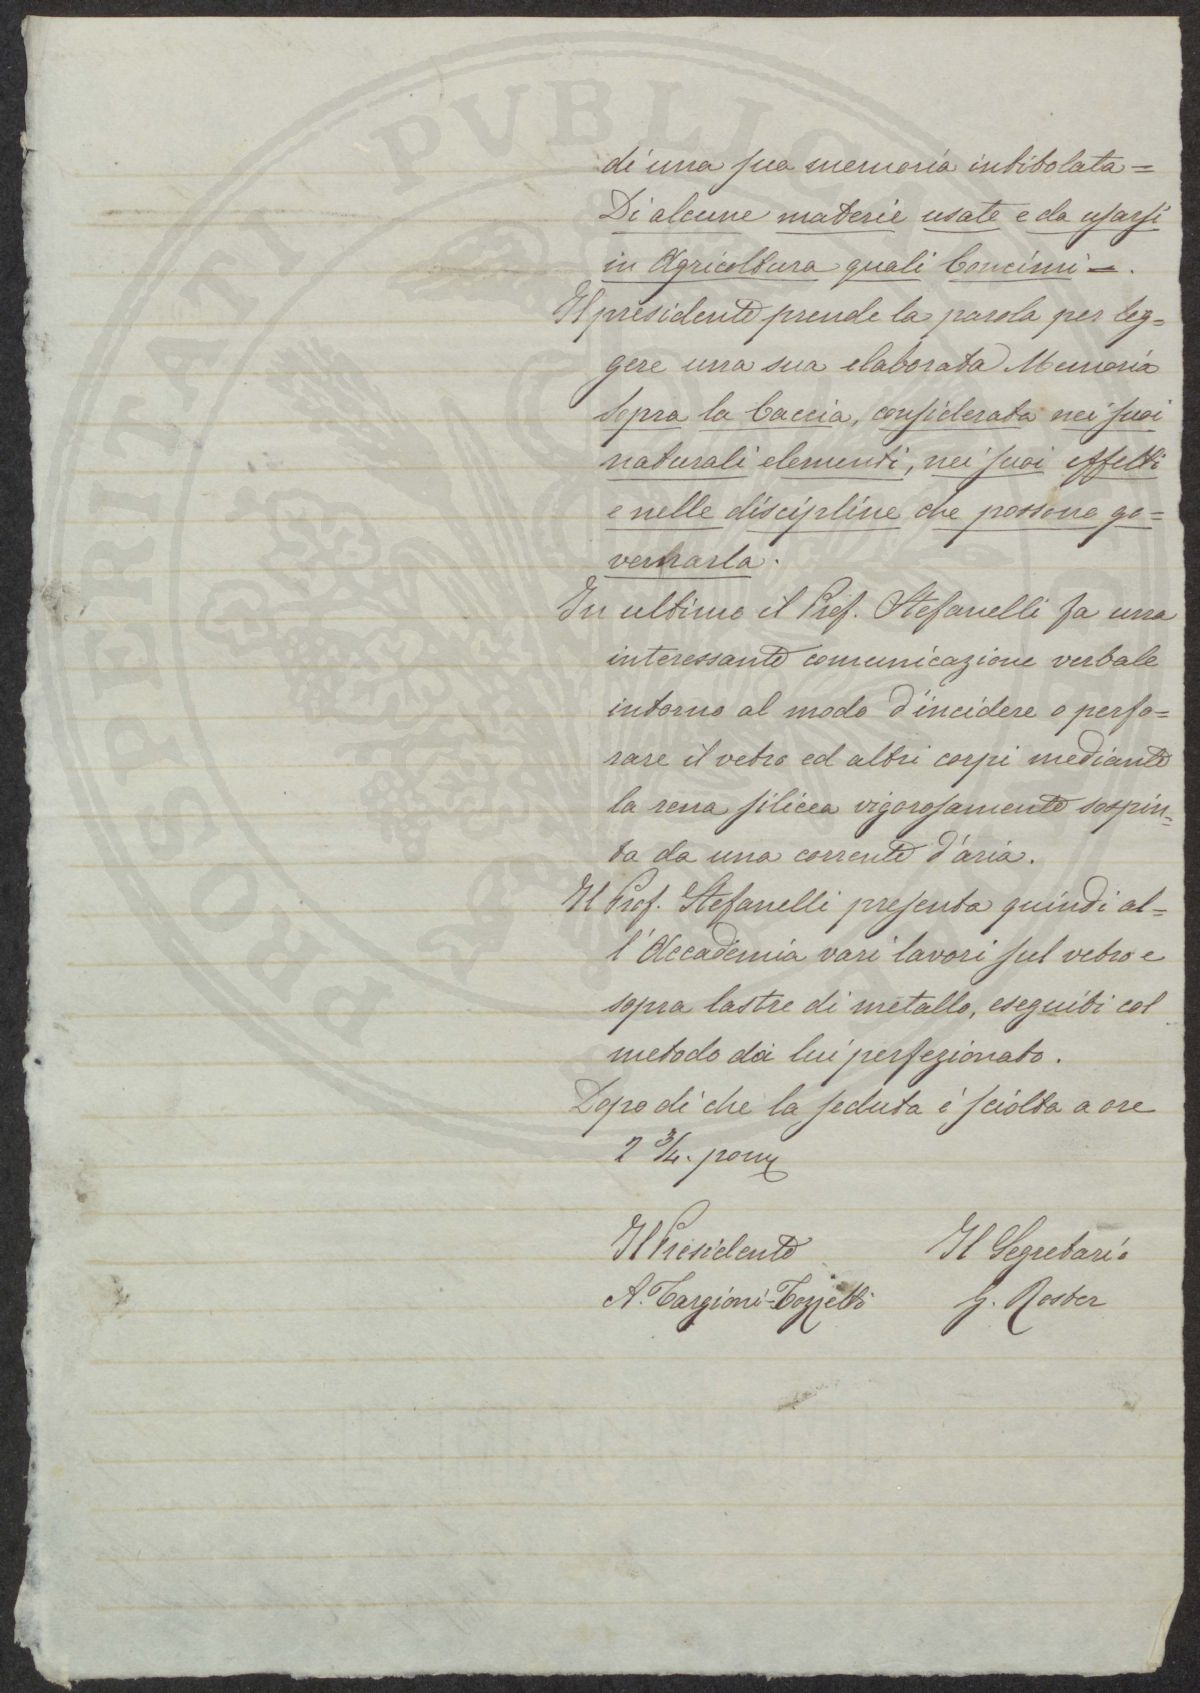 di una sua memoria intitolata =
Di alcune materie usate e da usarsi
in Agricoltura quali Concimi = .
Il presidente prende la parola per leg=
gere una sua elaborata Memoria
sopra la Caccia, considerata nei suoi
naturali elementi, nei suoi effetti
e nelle discipline che possono go=
vernarla.
In ultimo il Prof. Stefanelli fa una
interessante comunicazione verbale
intorno al modo d'incidere o perfo=
rare il vetro ed altri corpi mediante
la rena silicea vigorosamente sospin=
ta da una corrente d'aria.
Il Prof. Stefanelli presenta quindi al=
l'Accademia vari lavori sul vetro e
sopra lastre di metallo, eseguiti col
metodo da lui perfezionato.
Dopo di che la seduta è sciolta a ore
2 3/4. pom
Il Presidente Il Segretario
A. Targioni-Tozzetti G. Roster
PROSPERITATI PUBLICAE